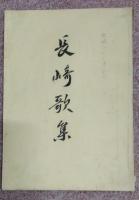 長崎歌集